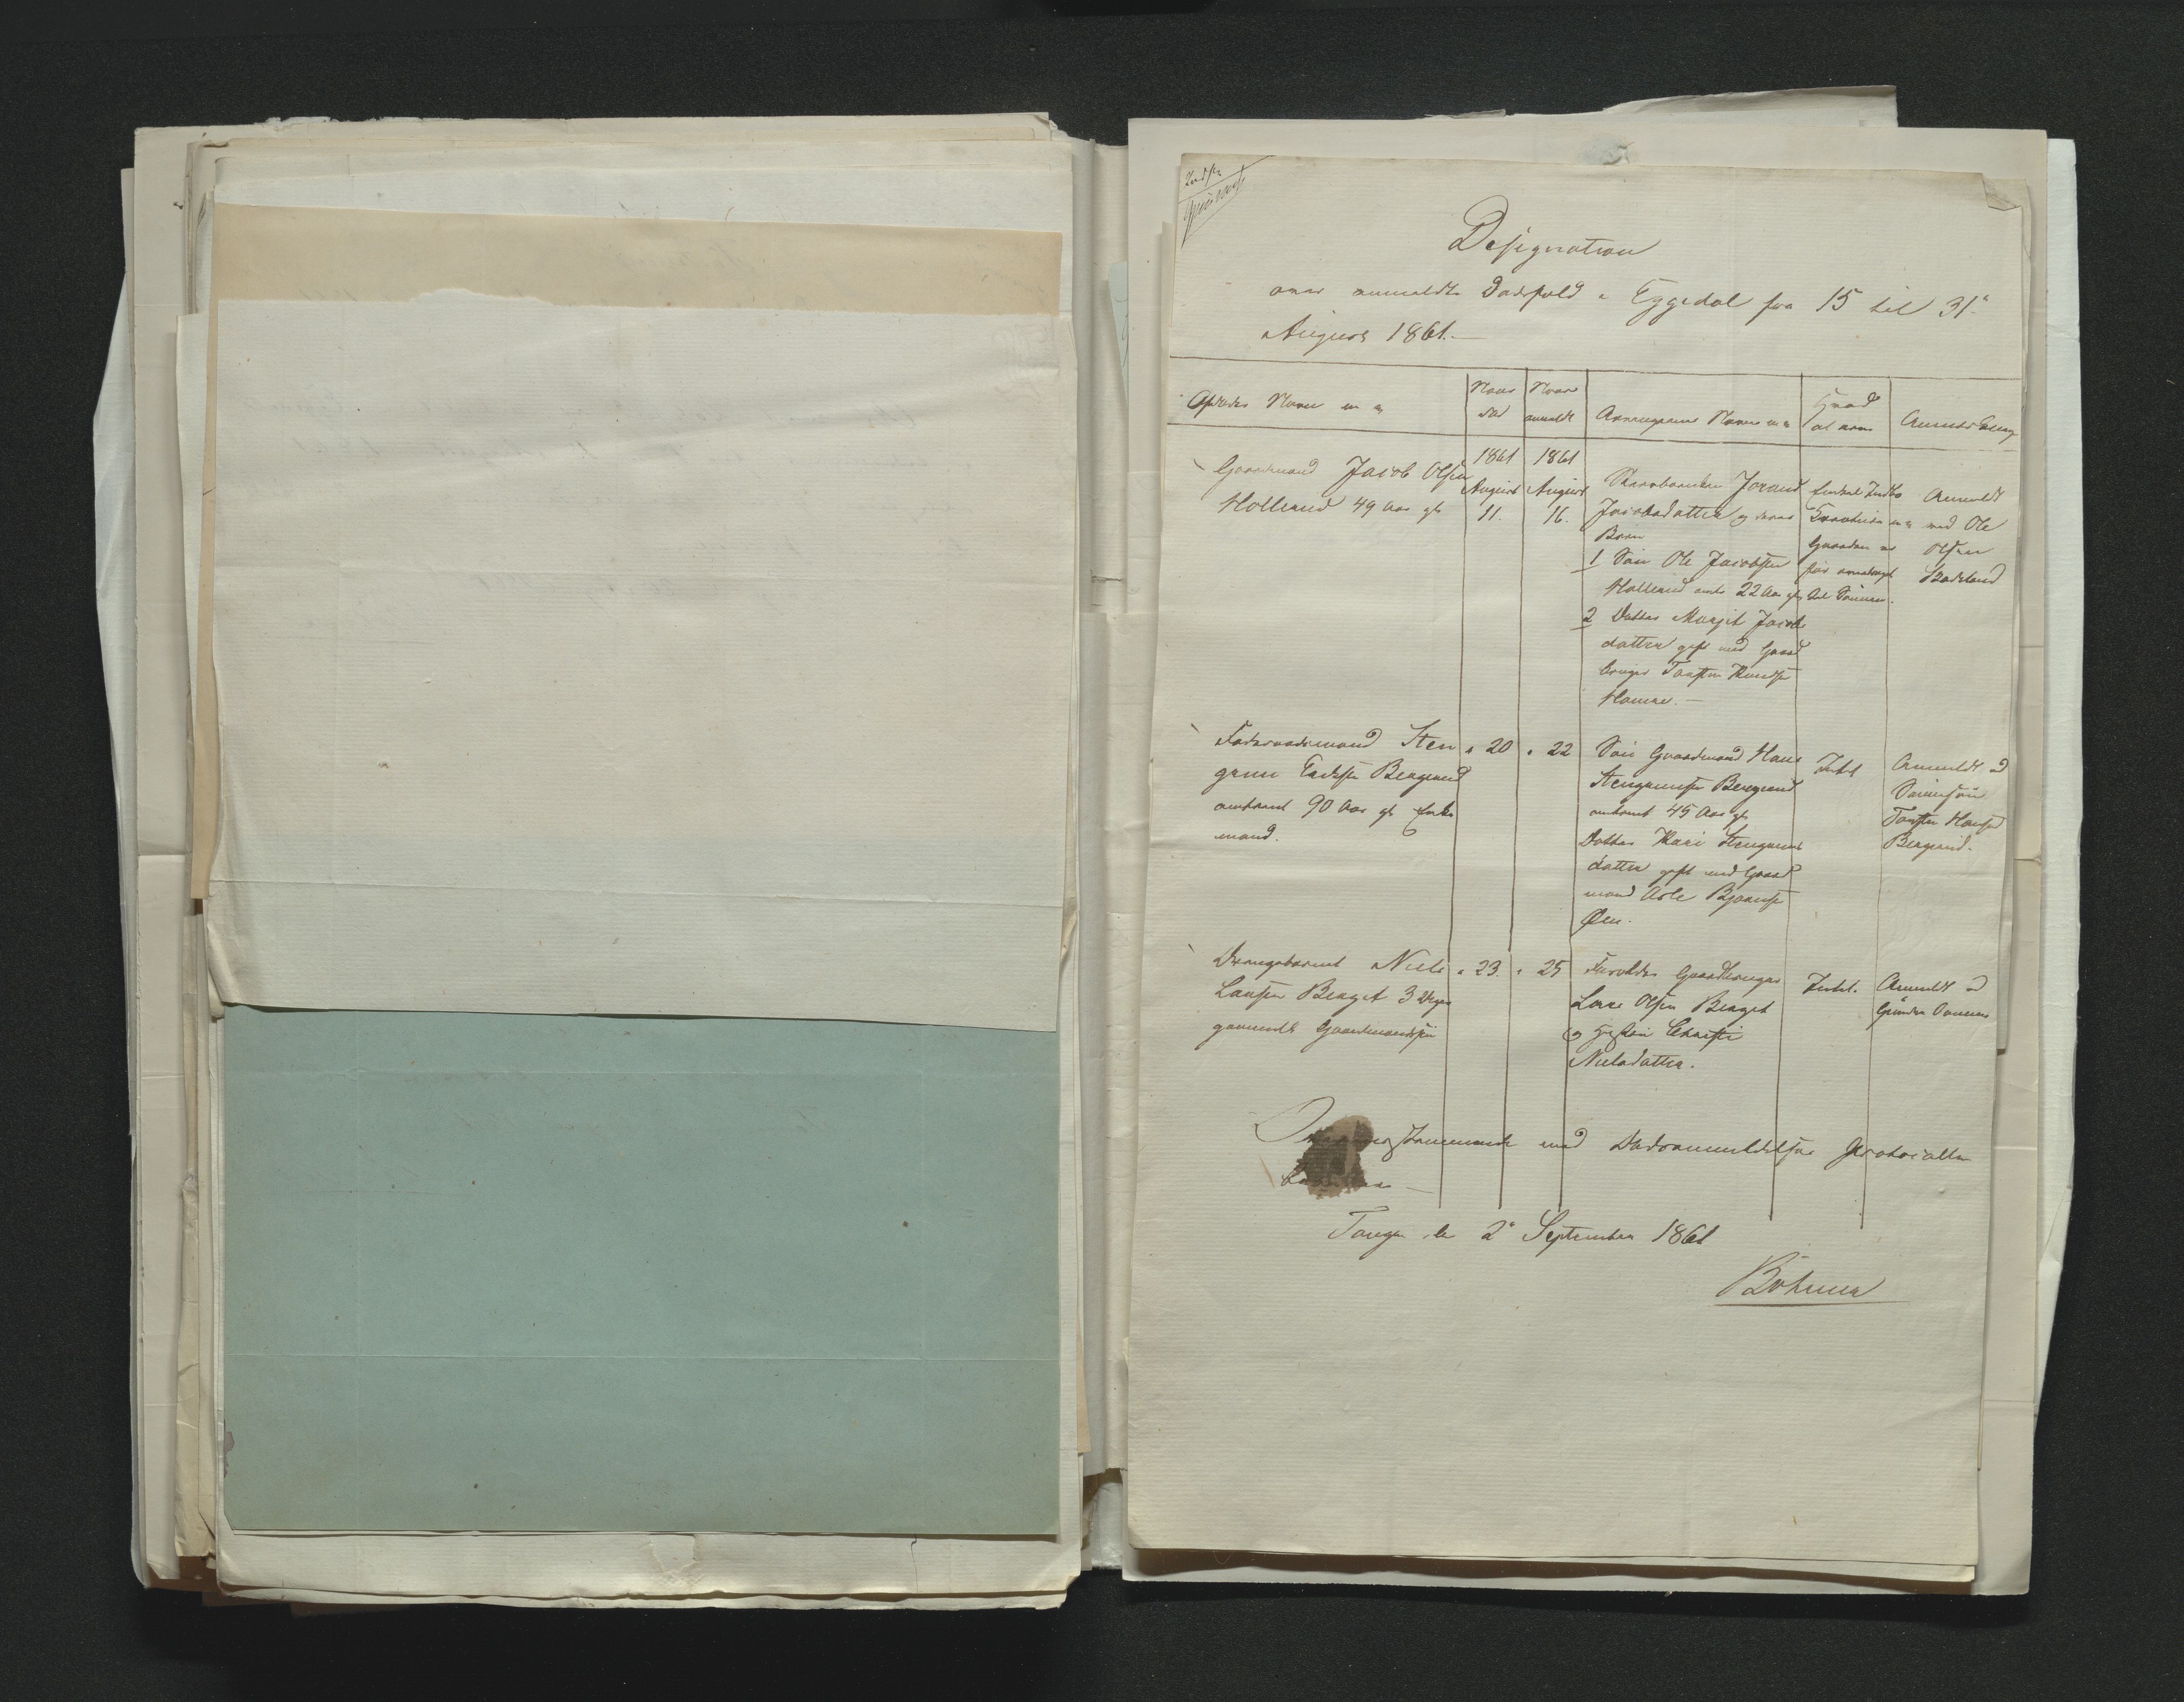 Designation
over anmeldte Dødsfald i Eggedal fra 15 til 31te
August 1861.
Afdødes Navn m m
Naar død
Naar anmeldt
Arvingernes Navne m m
Hvad at arve
Anmærkning
Gaardmand Jacob Olsen
Hollerud 49 Aar gl
1861
August
11.
1861
August
16.
Jorand
Jacobsdatter og deres
Børn
1 Søn Ole Jacobsen
Hollerud omtr 22 Aar gl
2 Datter Margit Jacobs
datter gift med Gaard
bruger Torsten Knudsen
Hamre. —
Gaarden er
før
til Sønnen.
Anmeldt
ved Ole
Olsen
Føderaadsmand Sten
grim Eriksen Bergerud
omtrent 90 Aar gl Enke
mand.
" 20
" 22
Søn Gaardmand Hans
Stengrimsen Bergerud
omtrent 45 Aar gl
Datter Kari Stengrims
datter gift med Gaard
mand Asle Bjørnsen
Øen.
Intet
Anmeldt d
Sønnesøn
Torsten Hansen
Bergerud.
Drengebarnet Niels
Larsen Berget 3 Uger
gammelt Gaardmandssøn
" 23.
" 25
Forældre Gaardbruger
Lars Olsen Berget
og Hustru Christi
Nielsdatter.
Intet.
Anmeldt d
med Dødsanmeldelses Protocollen
Tangen den 2de September 1861
Bøhmer